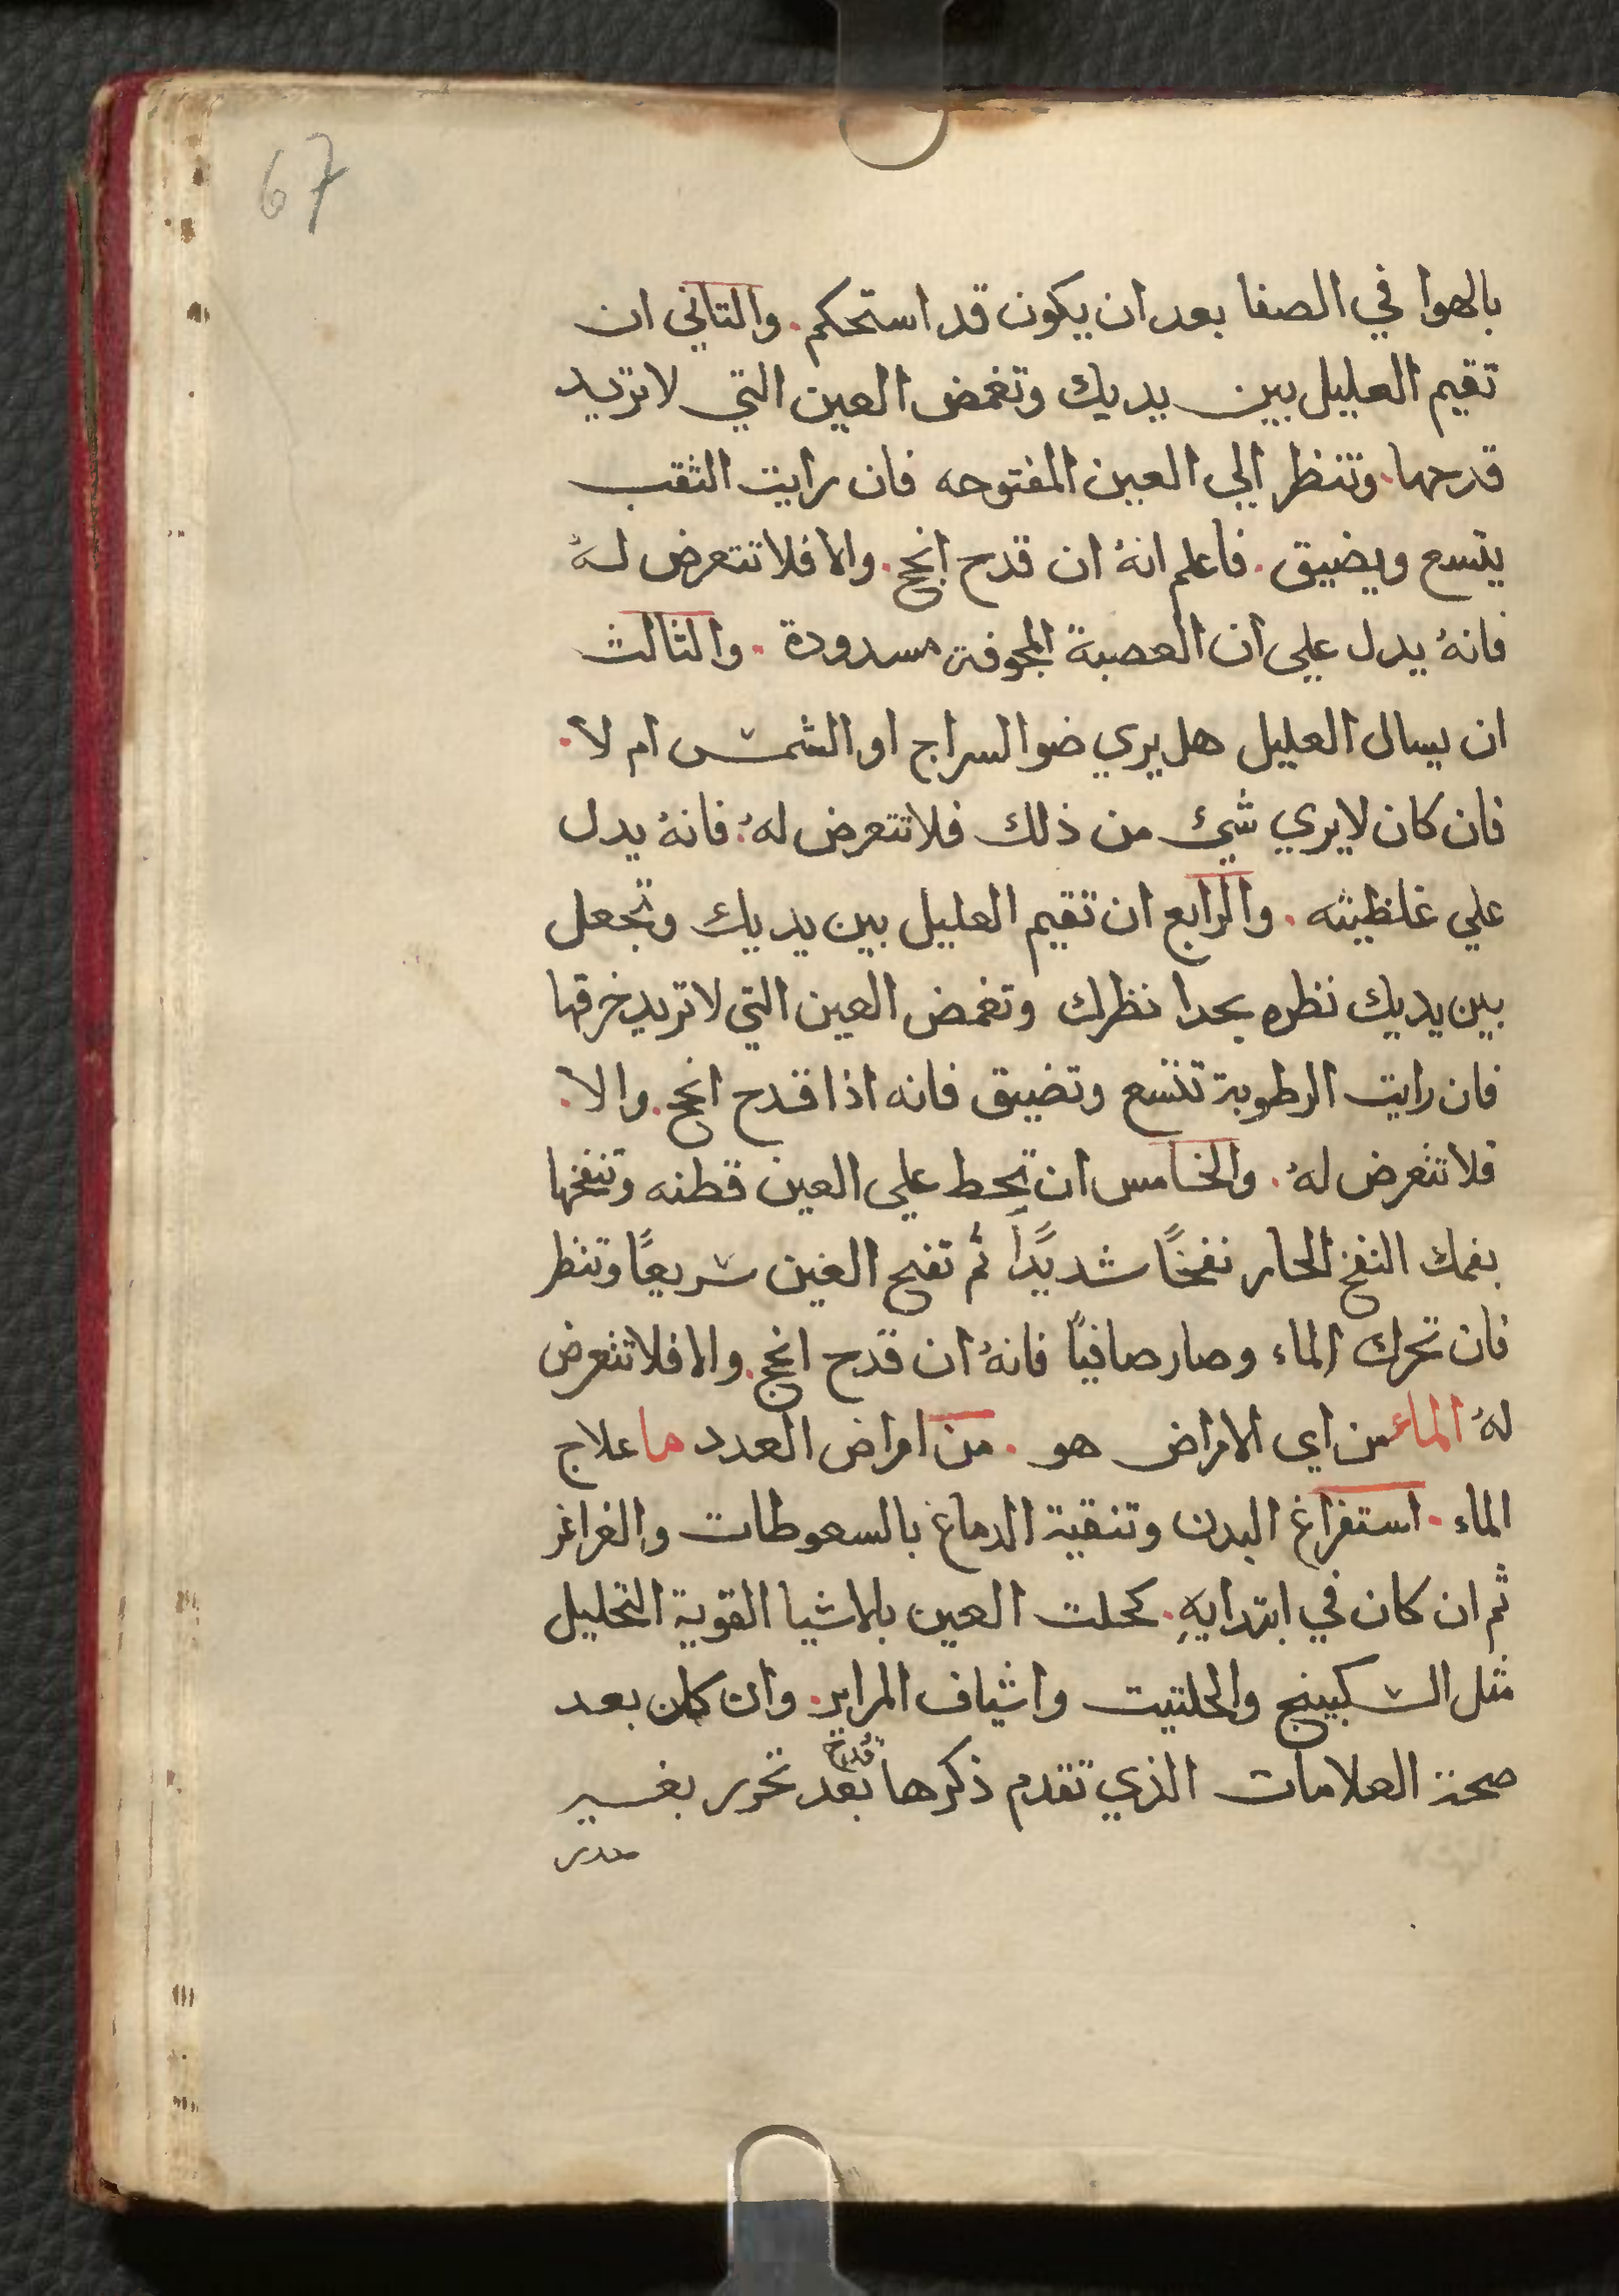 67
بالهوا في الصفا بعد ان يكون قد استحكم. والتاني ان
تقيم العليل بين يديك وتغمض العين التي لا تريد
قدحها. وتنظر الي العين المفتوحه فان رايت الثقب
يتسع ويضيق. فاعلم انهُ ان قدح انجح. والا فلا تتعرض لهُ
فانهُ يدل علي ان العصبة المجوفة مسدودة. والثالث
ان يسال العليل هل يري ضو السراج او الشمس ام لا.
فان كان لا يري شيئ من ذلك فلا تتعرض لهُ. فانهُ يدل
علي غلظيته. والرابع ان تقيم العليل بين يديك وتجعل
بين يديك نظره بحدا نظرك وتغمض العين التي لا تريد خرقها
فان رايت الرطوبة تتسع وتضيق فانه اذا قدح انجح. والا.
فلا تتعرض لهُ. والخامس ان تحط علي العين قطنه وتنفخها
بفمك النفخ الحار نفخًا شديدًا ثم تفتح العين سريعًا وتنظر
فان تحرك الماء وصار صافيًا فانهُ ان قدح انجح. والا فلا تتعرض
لهُ الماء من اي الامراض هو. من امراض العدد ما علاج
الماء. استفراغ البدن وتنقية الدماغ بالسعوطات والغراغر
ثم ان كان في ابتدايهِ. كحلت العين بالاشيا القوية التحليل
مثل السكبينج والحلتيت واشياف المراير. وان كان بعد
صحة العلامات الذي تقدم ذكرها قُدح بعد تحرر بغير